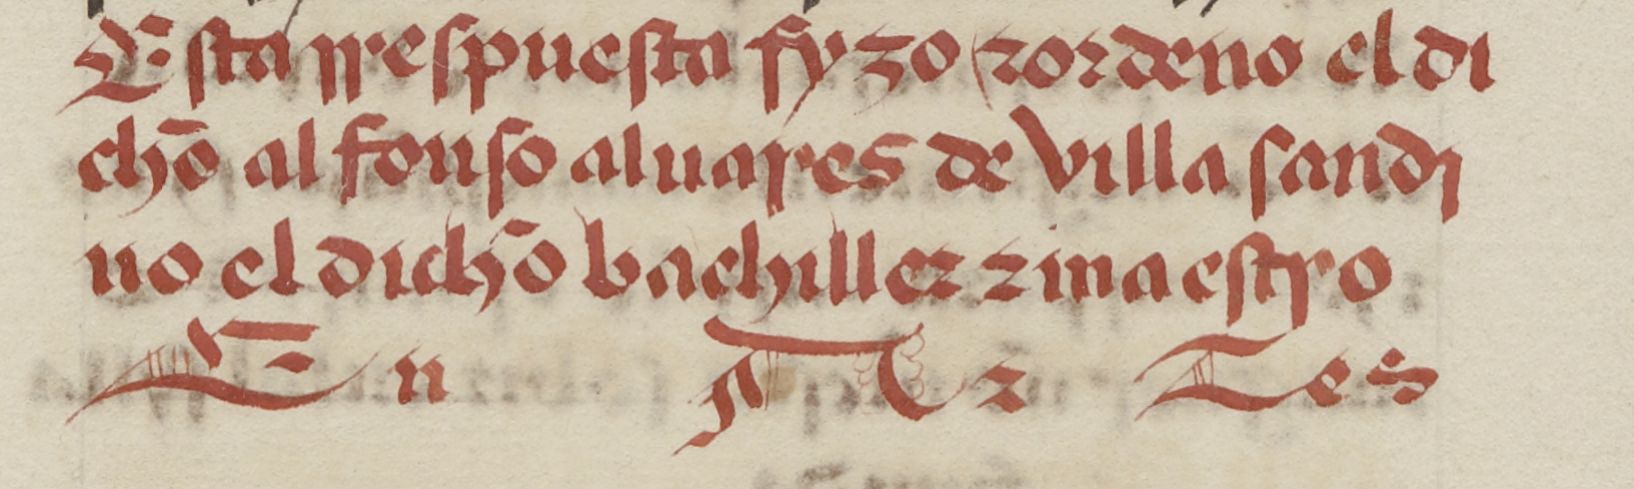 Esta rrespuesta fyzo ⁊ ordeno el di
cho alfonso aluares de villa sandi
no el dicho bachiller ⁊ maestro
En Artes